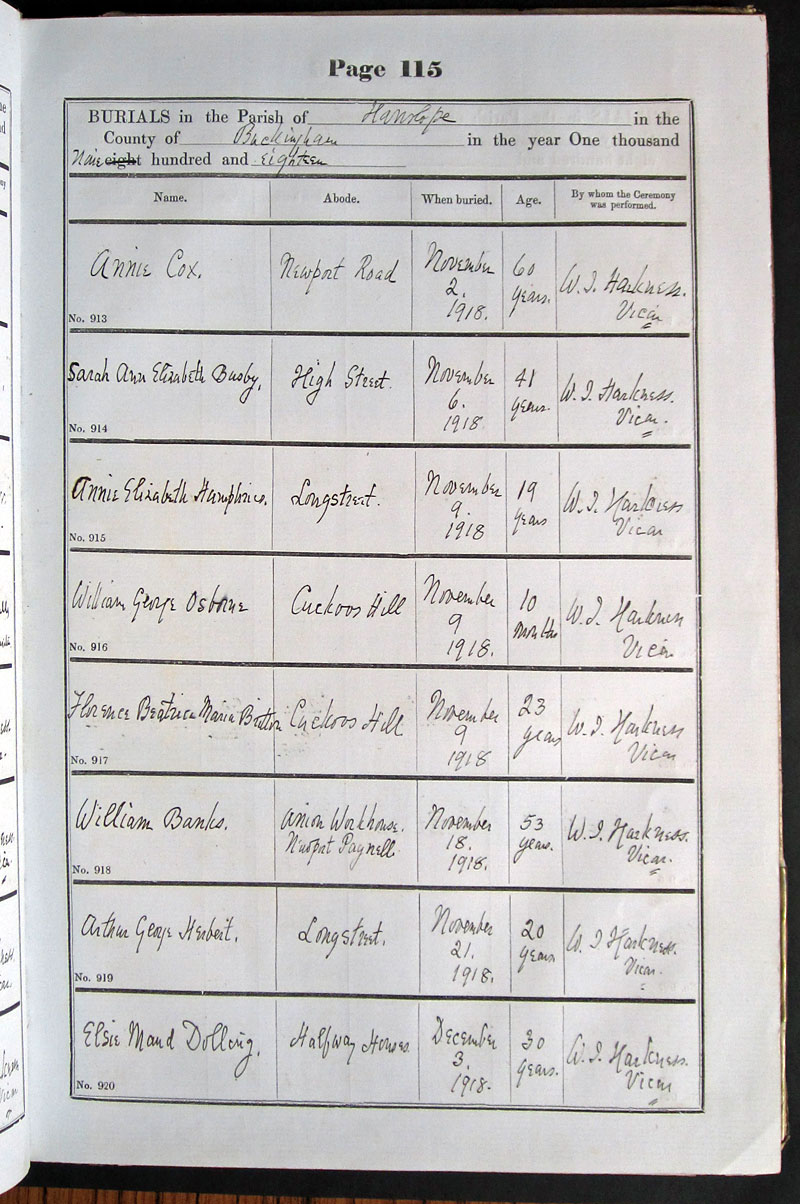 Page 115
BURIALS in the Parish of Hanslope in the
County of Buckingham in the year One thousand
Nine eight hundred and eighteen
Name. Abode. When buried. Age. By whom the Ceremony
was performed.
Annie Cox. Newport Road November 60 W. J. Harkness.
2. years. Vicar
1918.
No. 913
Sarah Ann Elizabeth Busby. High Street. November 41 W. J. Harkness.
6. years. Vicar.
1918
No. 914
Annie Elizabeth Humphries. Longstreet. November 19 W. J. Harkness
9. years Vicar
1918
No. 915
William George Osborne Cuckoos Hill November 10 W. J. Harkness
9 months Vicar
1918.
No. 916
Florence Beatrice Maria Britton Cuckoos Hill November 23 W. J. Harkness
9 years Vicar
1918
No. 917
William Banks. Union Workhouse. November 53 W. J. Harkness.
Newport Pagnell. 18. years. Vicar.
1918.
No. 918
Arthur George Herbert. Longstreet. November 20 W. J Harkness.
21. years Vicar.
1918.
No. 919
Elsie Maud Dolling. Halfway Houses December 30 W. J. Harkness.
3. years. Vicar
1918.
No. 920